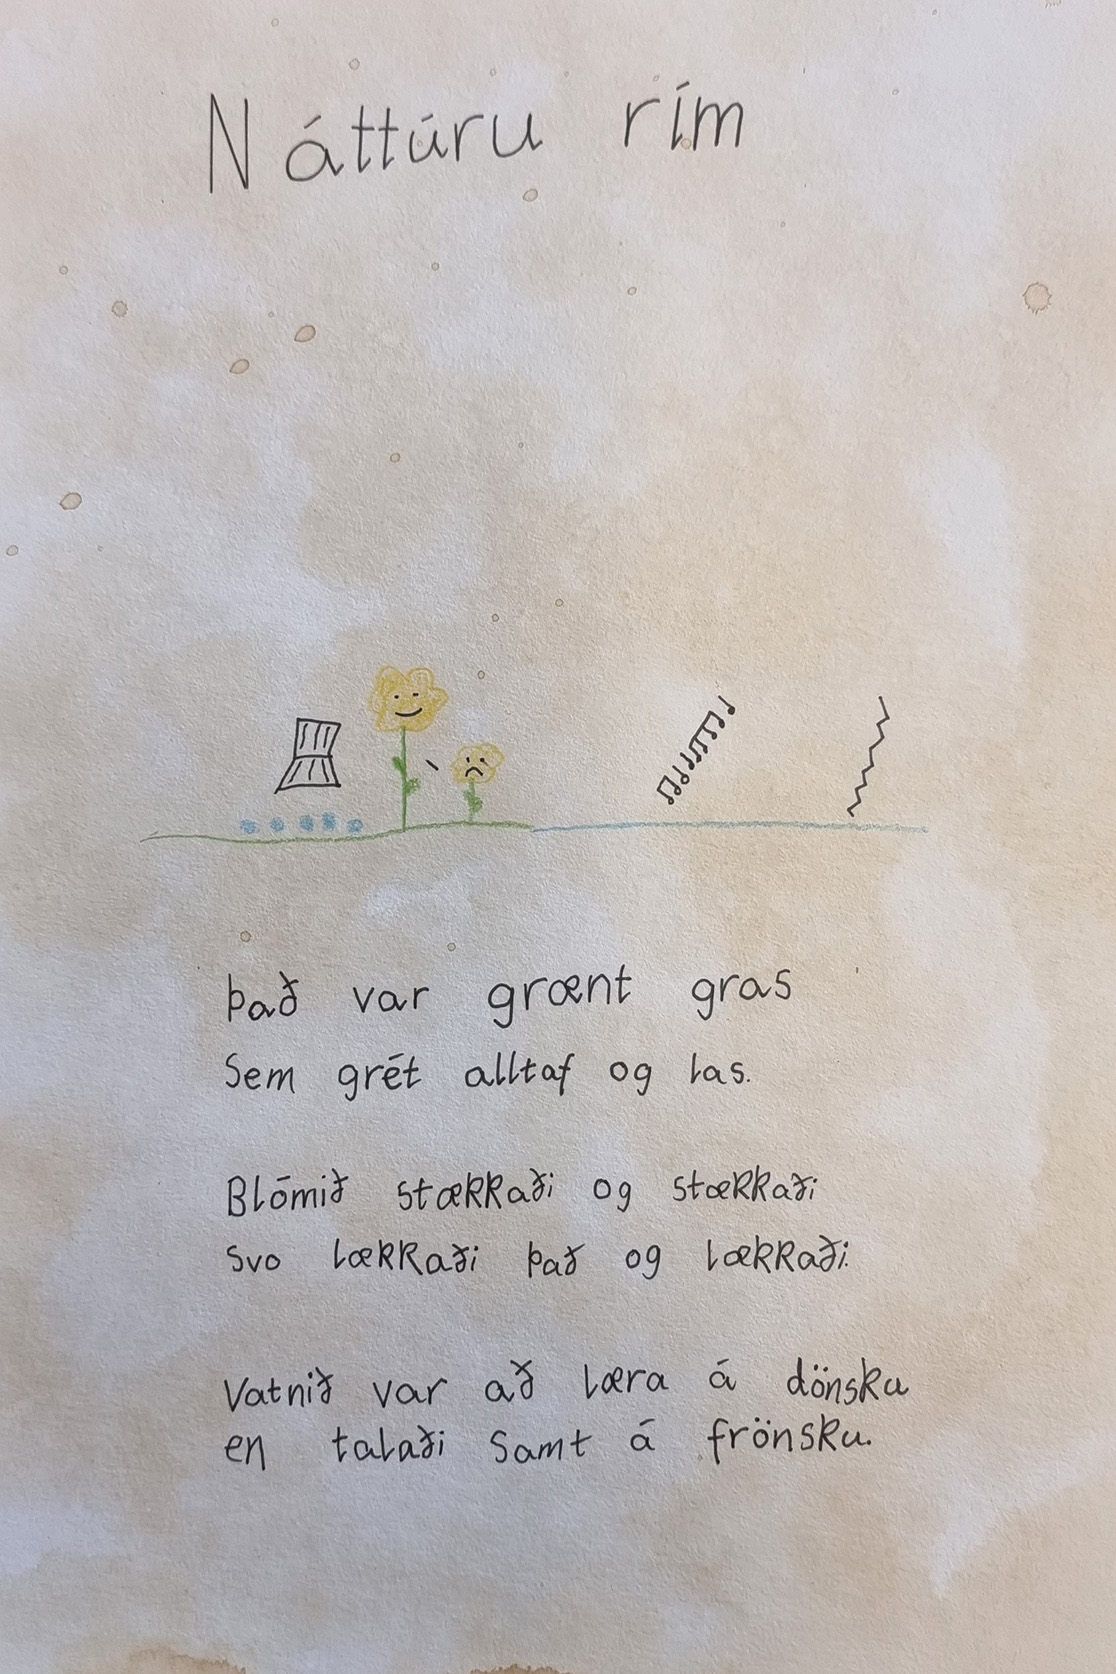 Náttúru rím
Það var grænt gras
Sem grét alltaf og las.
Blómið stækkaði og stækkaði
Svo lækkaði það og lækkaði.
Vatnið var að læra á dönsku
en talaði samt á frönsku.